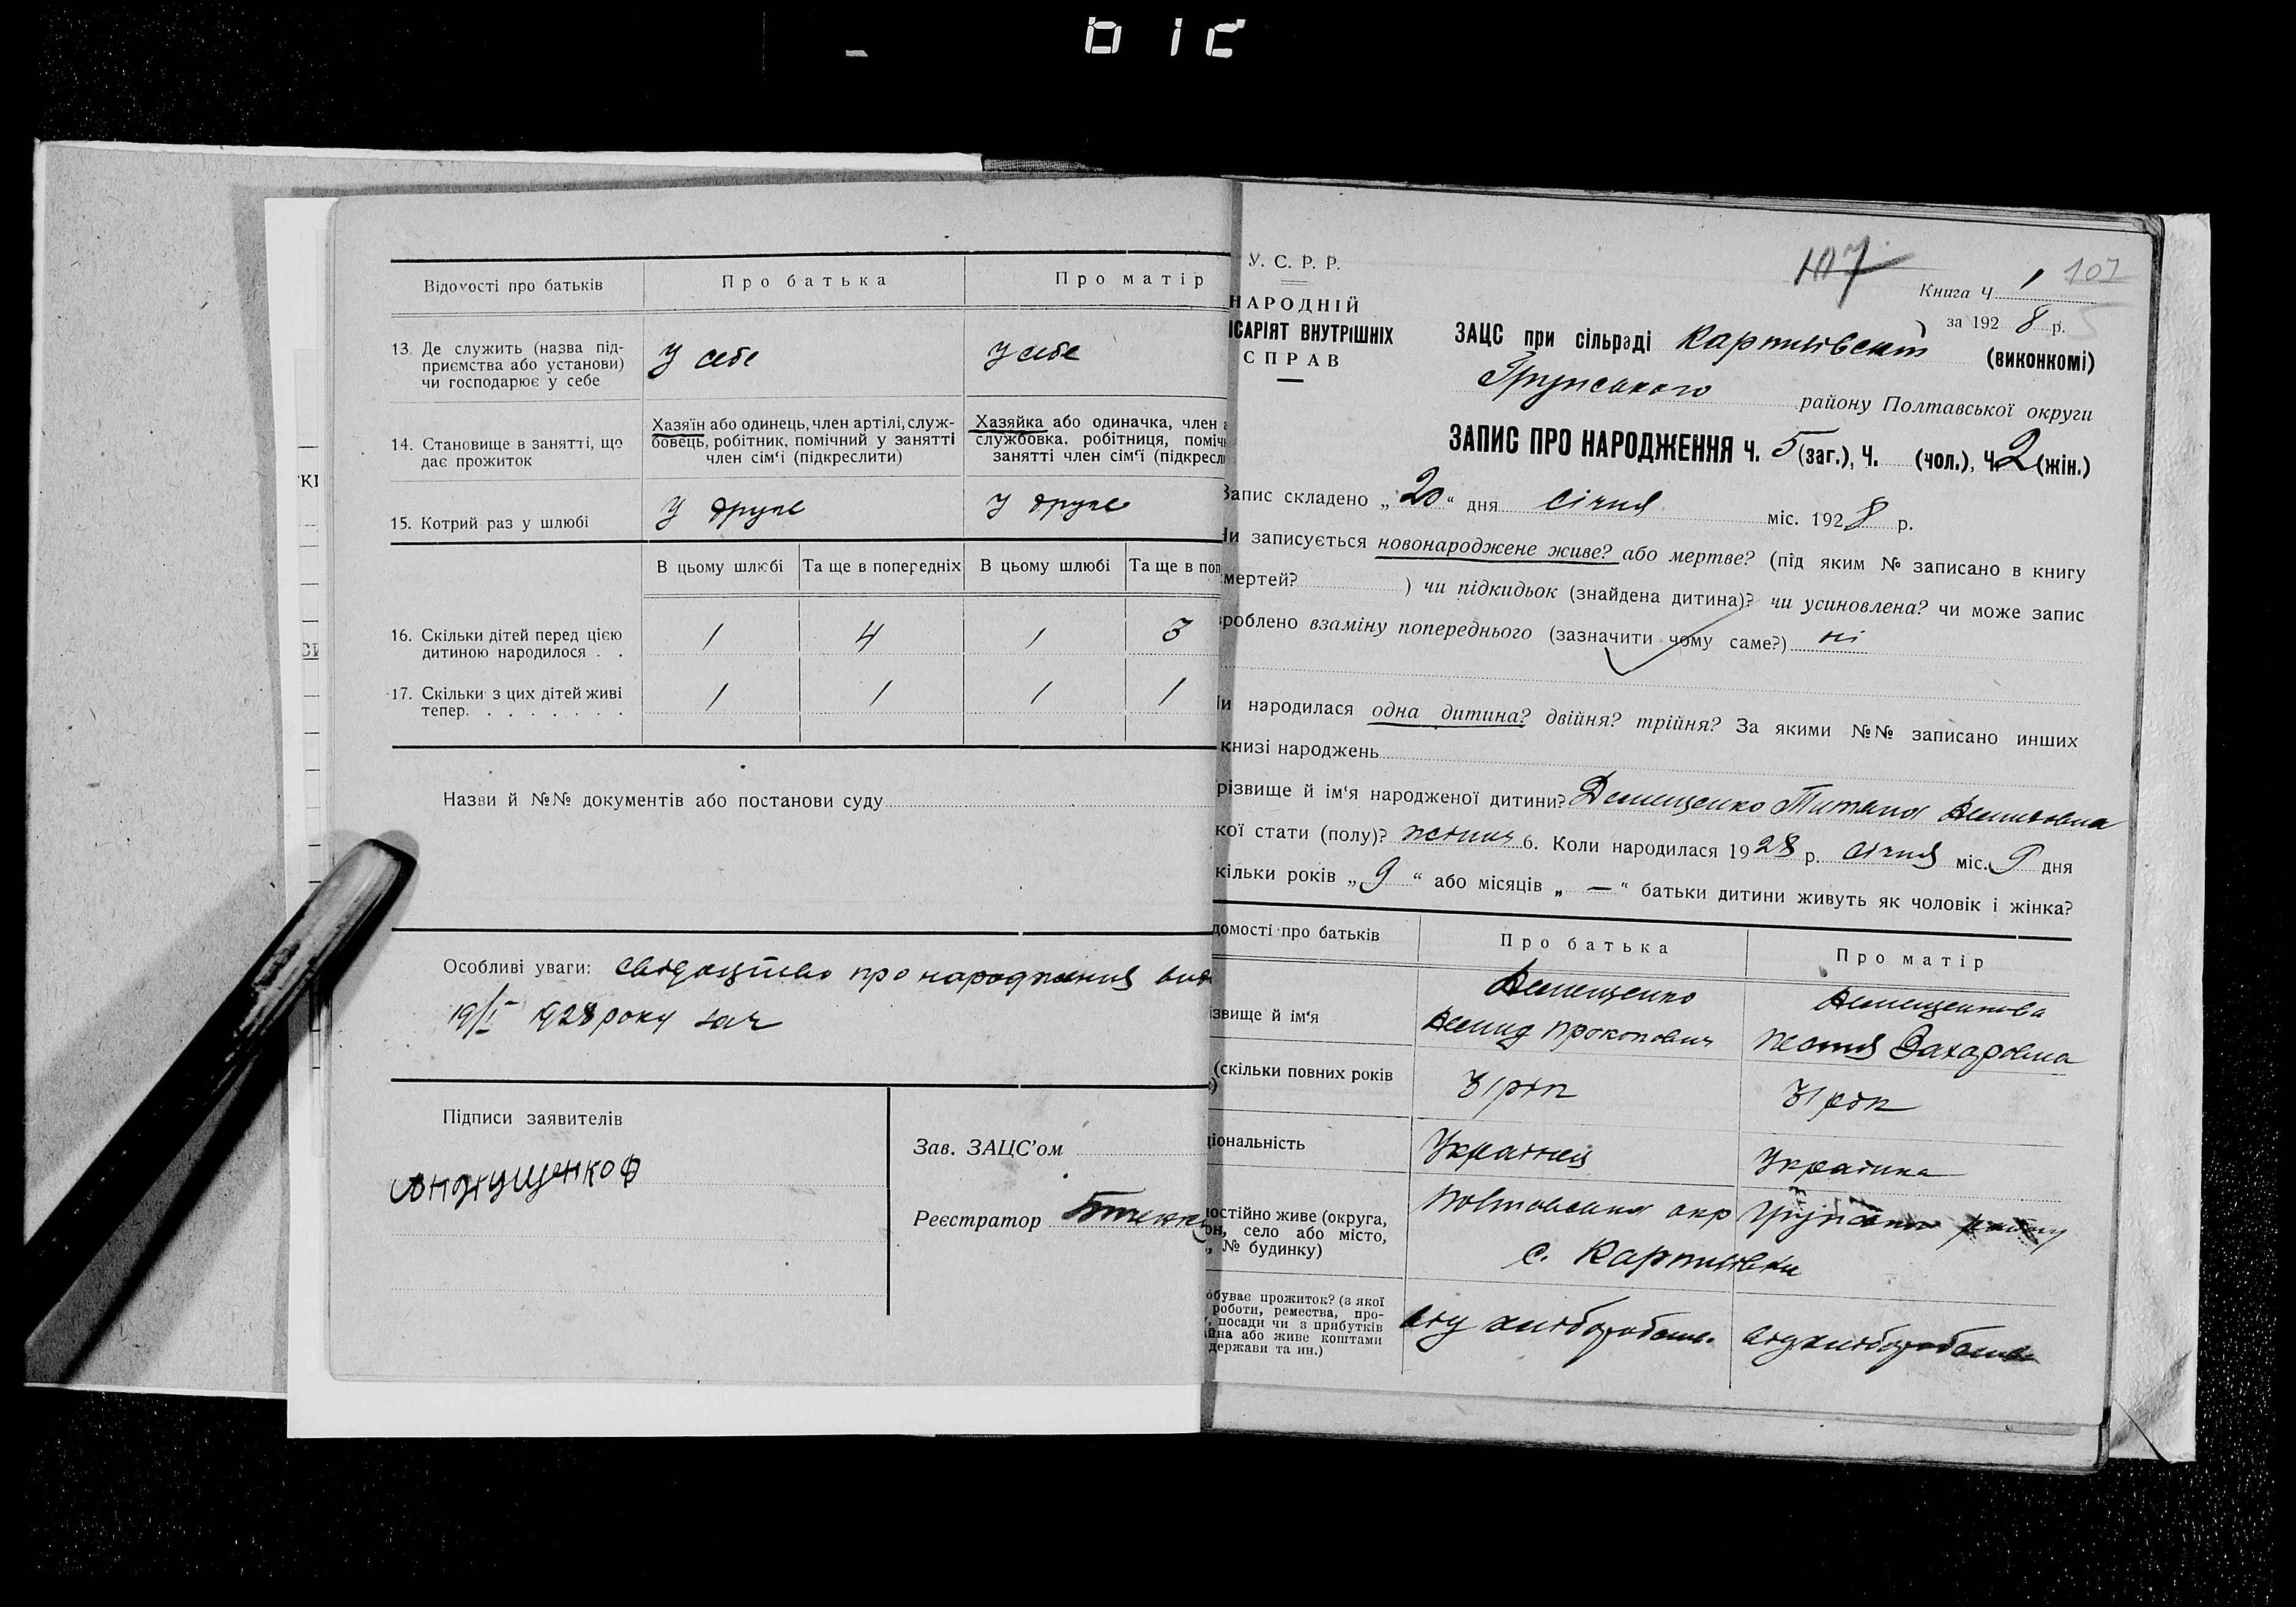 Відомості про батьків
Про батька
Про матір
13. Де служить (назва під-
приємства або установи)
чи господарює у себе
У себе
У себе
14. Становище в занятті, що
дає прожиток
Хазяїн або одинець, член артілі, служ-
бовець, робітник, помічний у занятті
член сім'ї (підкреслити)
Хазяйка або одиначка, член
службовка, робітниця, поміч
занятті член сім'ї (підкресл
15. Котрий раз у шлюбі
У друге
У друге
В цьому шлюбі
Та ще в попередніх
В цьому шлюбі
Та ще в поп
16. Скільки дітей перед цією
дитиною народилося . .
1 4 1 3
17. Скільки з цих дітей живі
тепер. . . . . . . .
1 1 1 1
Назви й №№ документів або постанови суду
Особливі уваги: свідоцтво про народження вид
19/I 1928 року
Підписи заявителів
Зав. ЗАЦС'ом
Реєстратор
У. С. Р. Р.
НАРОДНІЙ
ІСАРІЯТ ВНУТРІШНІХ
СПРАВ
107
107
5
Книга Ч. 1
за 1928 р.
ЗАЦС при сільраді (виконкомі)
Грунського району Полтавської округи
ЗАПИС ПРО НАРОДЖЕННЯ Ч. 5 (заг.), Ч. (чол.), Ч. 2 (жін.)
Запис складено „20“ дня січня міс. 1928 р.
Чи записується новонароджене живе? або мертве? (під яким № записано в книгу
смертей? ) чи підкидьок (знайдена дитина)? чи усиновлена? чи може запис
зроблено взаміну попереднього (зазначити чому саме?) ні
и народилася одна дитина? двійня? трійня? За якими №№ записано инших
книзі народжень
різвище й ім'я народженої дитини?
кої стати (полу)? 6. Коли народилася 1928 р. січня міс. 9 дня
кільки років „9“ або місяців „—“ батьки дитини живуть як чоловік і жінка?
домості про батьків
Про батька
Про матір
ізвище й ім'я
Прокопович
Захаровна
(скільки повних років
31 рік
31 рік
ціональність
Українець
Українка
постійно живе (округа,
он, село або місто,
, № будинку)
Полтавська окр
с.
обуває прожиток? (з якої
роботи, ремества, про-
, посади чи з прибутків
йна або живе коштами
держави та ин.)
від хліборобства
від хліборобства